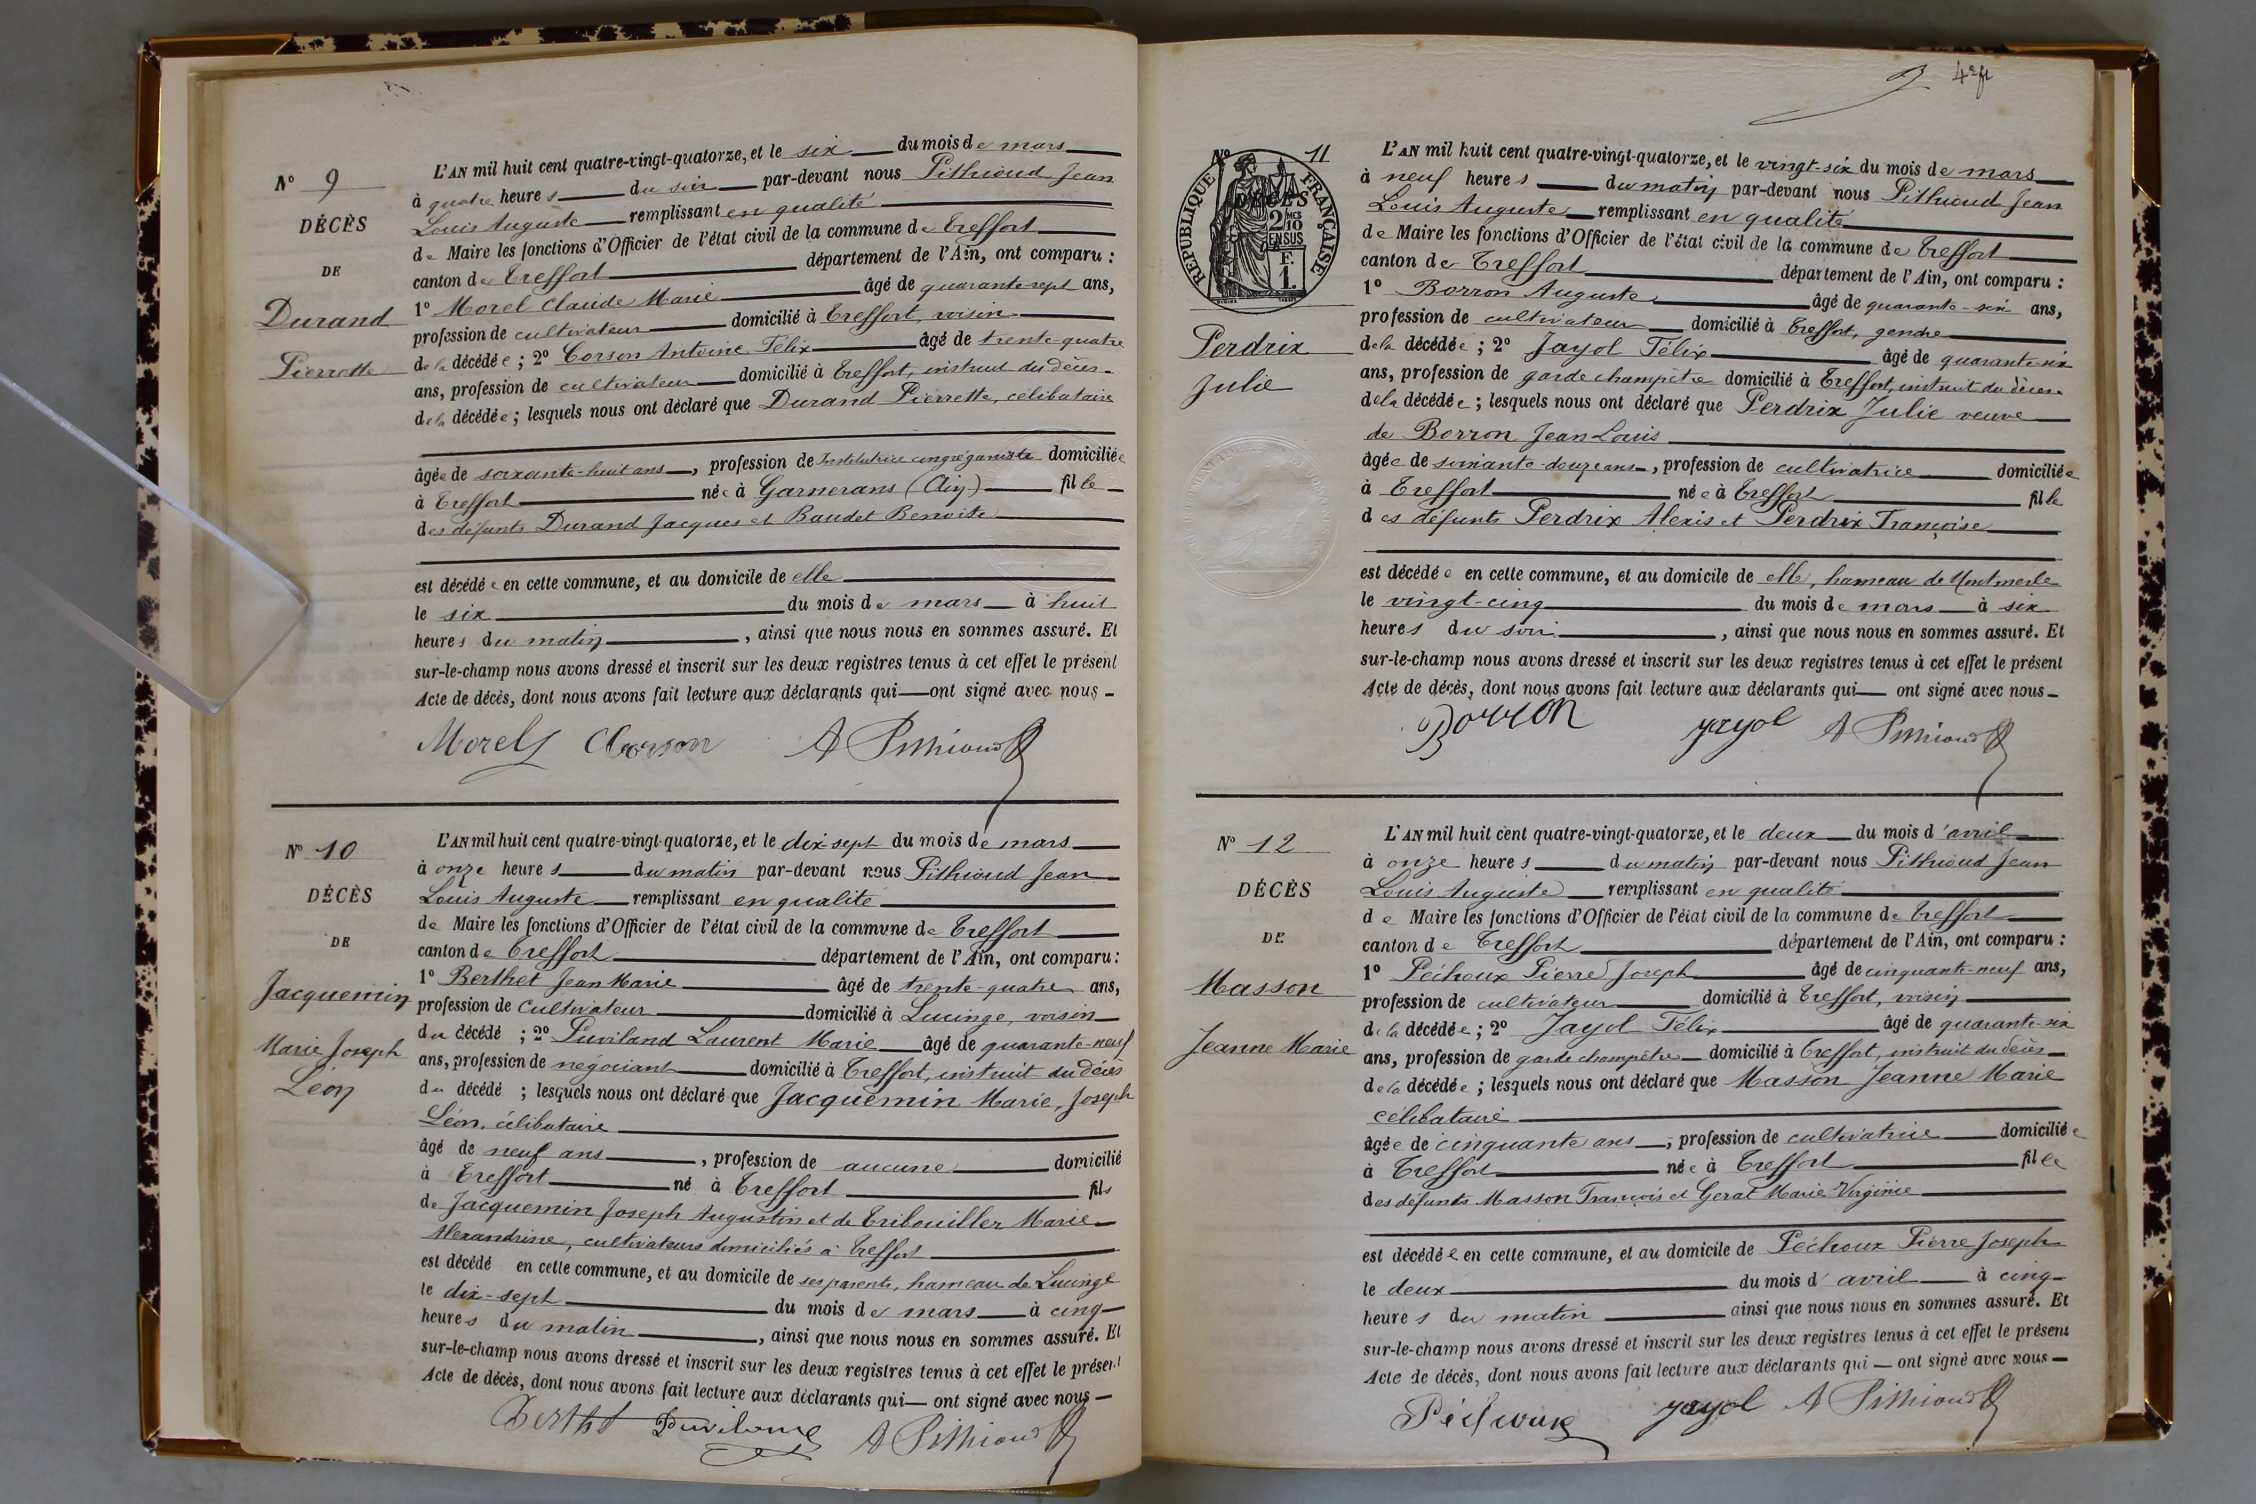 N° 9
DÉCÈS
DE
Durand
Pierrette
L'AN mil huit cent quatre-vingt-quatorze, et le six du mois de mars
à quatre heures du soir par-devant nous Pithioud Jean
Louis Auguste remplissant en qualité
de Maire les fonctions d'Officier de l'état civil de la commune de Treffort
canton de Treffort département de l'Ain, ont comparu :
1° Morel Claude Marie âgé de quarante-sept ans,
profession de cultivateur domicilié à Treffort, voisin
de la décédée ; 2° Corson Antoine Félix âgé de trente-quatre
ans, profession de cultivateur domicilié à Treffort, instruit du décès
de la décédée ; lesquels nous ont déclaré que Durand Pierrette, célibataire
âgée de soixante-huit ans, profession de Institutrice congréganiste domiciliée
à Treffort née à Garnerans (Ain) fille
des défunts Durand Jacques et Baudet Benoite
est décédée en cette commune, et au domicile de elle
le six du mois de mars à huit
heures du matin, ainsi que nous nous en sommes assuré. Et
sur-le-champ nous avons dressé et inscrit sur les deux registres tenus à cet effet le présent
Acte de décès, dont nous avons fait lecture aux déclarants qui ont signé avec nous
Morel Corson A Pithioud
N° 10
DÉCÈS
DE
Jacquemin
Marie Joseph
Léon
L'AN mil huit cent quatre-vingt-quatorze, et le dix-sept du mois de mars
à onze heures du matin par-devant nous Pithioud Jean
Louis Auguste remplissant en qualité
de Maire les fonctions d'Officier de l'état civil de la commune de Treffort
canton de Treffort département de l'Ain, ont comparu :
1° Berthet Jean Marie âgé de trente-quatre ans,
profession de cultivateur domicilié à Lucinge, voisin
du décédé ; 2° Puviland Laurent Marie âgé de quarante-neuf
ans, profession de négociant domicilié à Treffort, instruit du décès
du décédé ; lesquels nous ont déclaré que Jacquemin Marie, Joseph
Léon, célibataire
âgé de neuf ans, profession de aucune domicilié
à Treffort né à Treffort fils
de Jacquemin Joseph Augustin et de Tribouiller Marie
Alexandrine, cultivateurs domiciliés à Treffort
est décédé en cette commune, et au domicile de ses parents, hameau de Lucinge
le dix-sept du mois de mars à cinq
heures du matin, ainsi que nous nous en sommes assuré. Et
sur-le-champ nous avons dressé et inscrit sur les deux registres tenus à cet effet le présent
Acte de décès, dont nous avons fait lecture aux déclarants qui ont signé avec nous
Berthet Puviland A Pithioud
4e ft
N° 11
RÉPUBLIQUE FRANÇAISE
DÉCÈS
2 MES 10
EN SUS
F.
1.
Perdrix
Julie
L'AN mil huit cent quatre-vingt-quatorze, et le vingt-six du mois de mars
à neuf heures du matin par-devant nous Pithioud Jean
Louis Auguste remplissant en qualité
de Maire les fonctions d'Officier de l'état civil de la commune de Treffort
canton de Treffort département de l'Ain, ont comparu :
1° Borron Auguste âgé de quarante-six ans,
profession de cultivateur domicilié à Treffort, gendre
de la décédée ; 2° Jayol Félix âgé de quarante-six
ans, profession de garde champêtre domicilié à Treffort, instruit du décès
de la décédée ; lesquels nous ont déclaré que Perdrix Julie veuve
de Borron Jean Louis
âgée de soixante-douze ans, profession de cultivatrice domiciliée
à Treffort née à Treffort fille
des défunts Perdrix Alexis et Perdrix Françoise
est décédée en cette commune, et au domicile de elle, hameau de Montmerle
le vingt-cinq du mois de mars à six
heures du soir, ainsi que nous nous en sommes assuré. Et
sur-le-champ nous avons dressé et inscrit sur les deux registres tenus à cet effet le présent
Acte de décès, dont nous avons fait lecture aux déclarants qui ont signé avec nous
Borron Jayol A Pithioud
N° 12
DÉCÈS
DE
Masson
Jeanne Marie
L'AN mil huit cent quatre-vingt-quatorze, et le deux du mois d'avril
à onze heures du matin par-devant nous Pithioud Jean
Louis Auguste remplissant en qualité
de Maire les fonctions d'Officier de l'état civil de la commune de Treffort
canton de Treffort département de l'Ain, ont comparu :
1° Péchoux Pierre Joseph âgé de cinquante-neuf ans,
profession de cultivateur domicilié à Treffort, voisin
de la décédée ; 2° Jayol Félix âgé de quarante-six
ans, profession de garde champêtre domicilié à Treffort, instruit du décès
de la décédée ; lesquels nous ont déclaré que Masson Jeanne Marie
célibataire
âgée de cinquante ans, profession de cultivatrice domiciliée
à Treffort née à Treffort fille
des défunts Masson François et Gerat Marie Virginie
est décédée en cette commune, et au domicile de Péchoux Pierre Joseph
le deux du mois d'avril à cinq
heures du matin ainsi que nous nous en sommes assuré. Et
sur-le-champ nous avons dressé et inscrit sur les deux registres tenus à cet effet le présent
Acte de décès, dont nous avons fait lecture aux déclarants qui ont signé avec nous
Péchoux Jayol A Pithioud